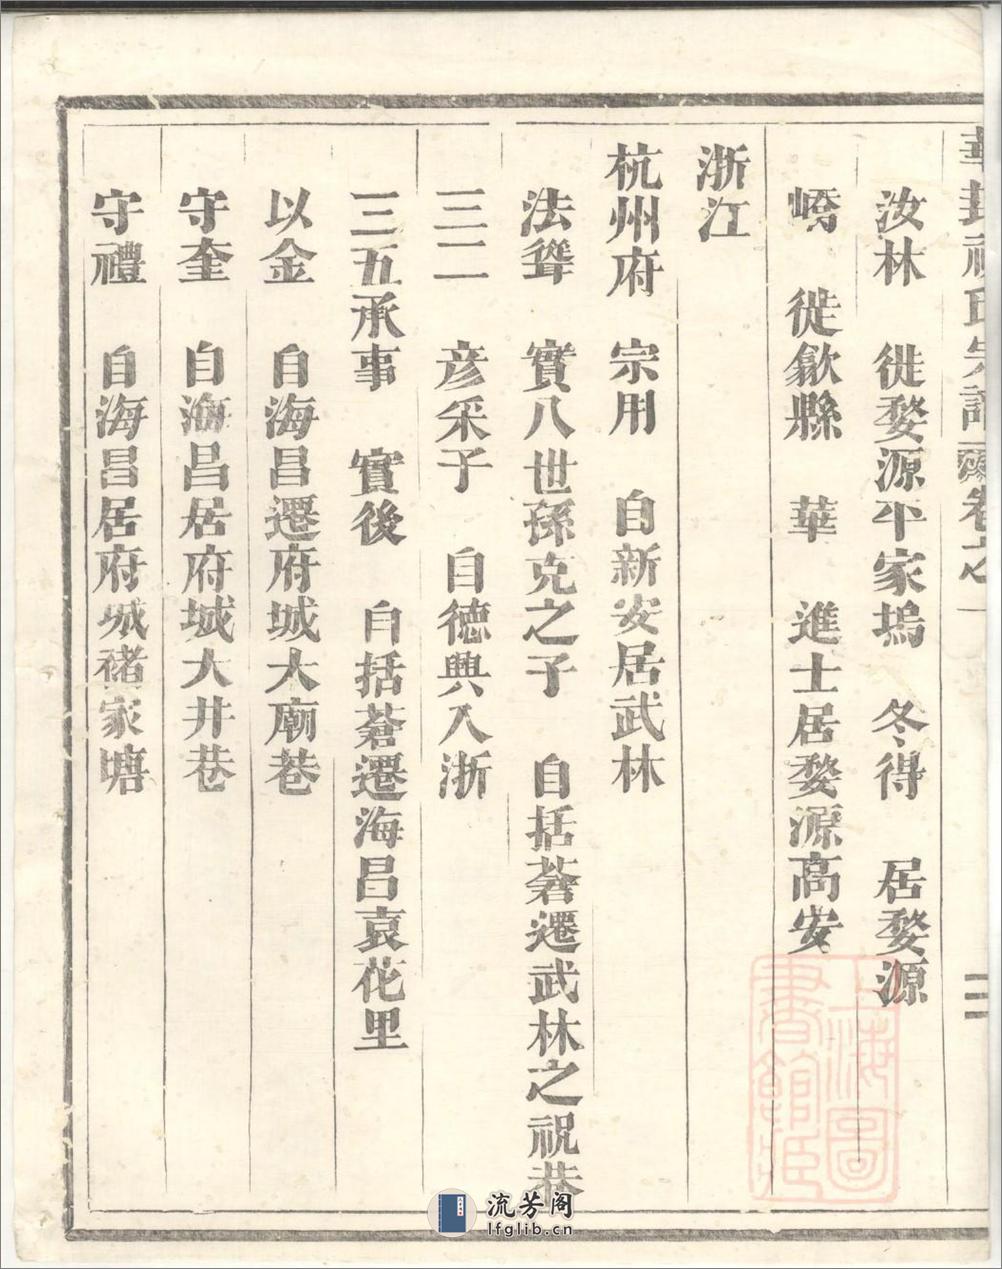 華封祝氏宗譜 卷之一 二
汝林 徙婺源平家塢 冬得 居婺源
嶠 徙歙縣 華 進士居婺源高安
浙江
杭州府 宗用 自新安居武林
法聳 實八世孫克之子 自括蒼遷武林之祝巷
三二 彦采子 自德興入浙
三五承事 實後 自括蒼遷海昌袁花里
以金 自海昌遷府城大廟巷
守奎 自海昌居府城大井巷
守禮 自海昌居府城褚家塘
上海圖書館藏
流芳阁
lfglib.cn